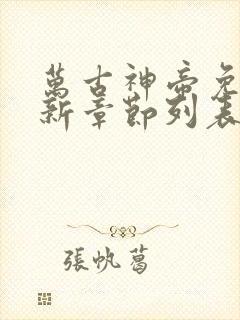 萬古神帝免
新章節列表
張帆葛